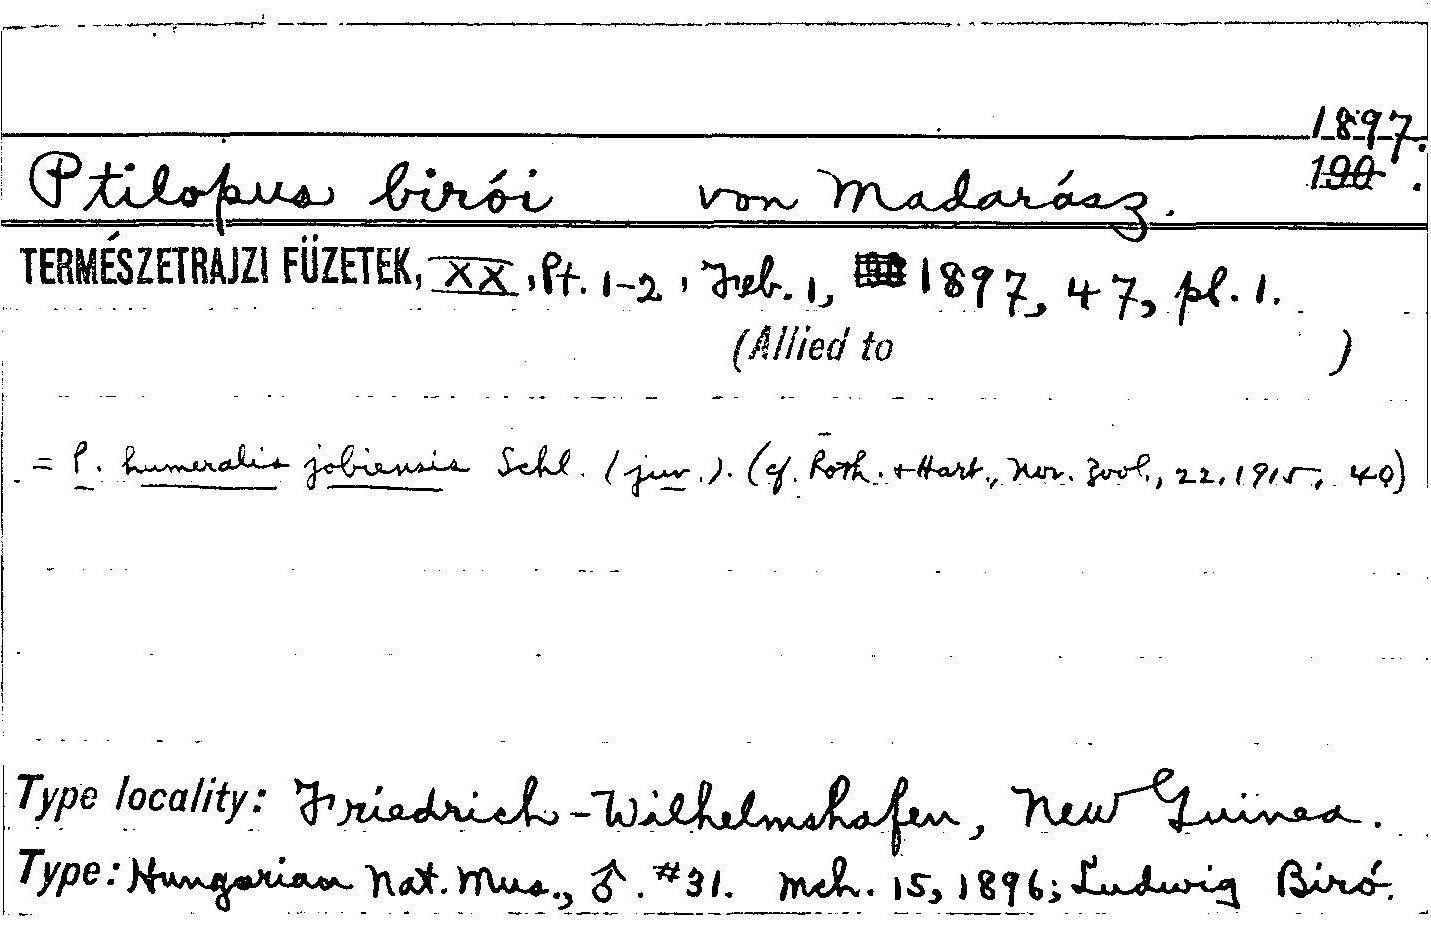 1897.
Ptilopus birói von Madarász. 190 .
TERMÉSZETRAJZI FÜZETEK, XX, Pt. 1-2, Feb. 1, 1897, 47, pl. 1.
(Allied to )
= P. humeralis jobiensis Schl. (juv.). (cf. Roth. + Hart., Nov. Zool., 22, 1915, 40)
Type locality: Friedrich-Wilhelmshafen, New Guinea.
Type: Hungarian Nat. Mus., ♂. #31. Mch. 15, 1896; Ludwig Biró.